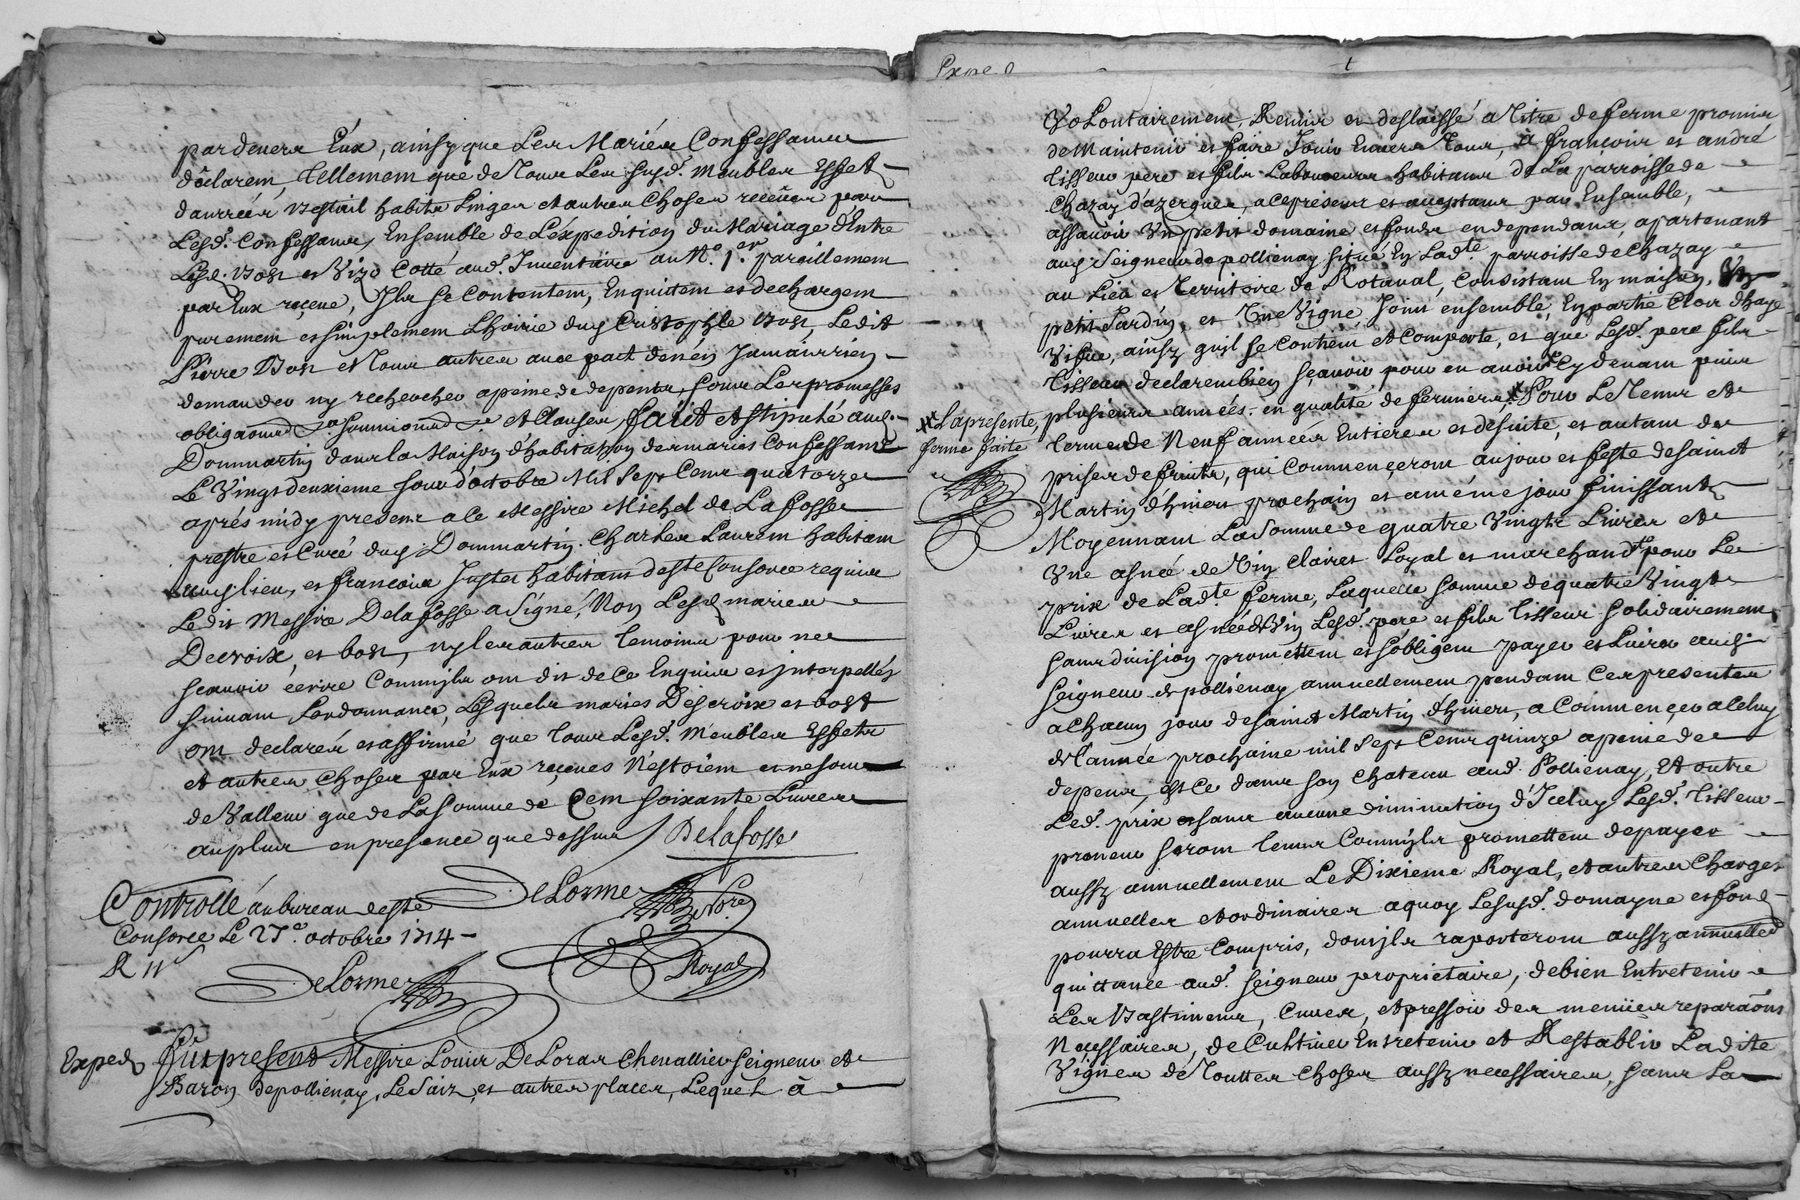 pardevers Eux, ainsy que Les Mariés Confessants
déclarent, tellement que de tous Les susd. meubles Effets
danrrées bestail habits Linges et autres Choses receües par
Lesd. Confessants, Ensemble de L'éxpedition du Mariage d'Entre
Lesd. bost et Vizo Cotté aud. Inventaire au N.o 1.er pareillement
par Eux reçeue, Ils se Contentent, En quittent et dechargent
purement et simplement L'hoirie dud Cristophle bost, Ledit
Pierre Bost et tous autres avec pact de n'en Jamais rien
demander ny rechercher a peine de depents, sous Les promesses
obligaons soumissions et Clauses faict et stipulé aud
Dommartin dans la Maison d'habitation des mariés Confessants
Le Vingt deuxieme jour d'octobre Mil Sept Cent quatorze
aprés midy present a ce Messire Michel de La fosse
prestre et Curé dud Dommartin. Charles Laurent habitant
aud lieu, et francois Juster habitans de ste Consorce requis
Ledit Messire Delafosse a Signé, Non Lesd mariés
Decroix, et bost, ny les autres temoins pour ne
sçavoir écrire Comm'ils ont dit de Ce Enquis et interpellés
suivant Lordonnance, Lesquels mariés Descroix et bost
ont declarés et affirmé que tous Lesd. Meubles Effets
et autres Choses par Eux reçeues N'estoient et ne sont
de Valleur que de La somme de Cent soixante Livres
au plus en presence que dessus / Delafosse
DeLorme No.re Royal
Controllé au bureau de ste
Consorce Le 27.e octobre 1714
R 11 s
DeLorme
Exped Fut present Messire Louis DeLoras Chevallier seigneur et
Baron de pollienay, Le Saix, et autres places, Lequel à
Exped
Volontairement, Remis et deslaissé a Titre de ferme promis
de Maintenir et faire Jouir Envers tous, à francois et andré
tisseur pere et fils Laboureurs habitans de La parroisse de
Chazay d'azergues, a ce presents et acceptants par Ensemble,
assavoir Un petit domaine et fonds en dependans, apartenant
aud Seigneur de pollienay situé En Lad.te parroisse de Chazay
au Lieu et Territoire de Rotaval, Consistant En maison, Un
petit Jardin, et Une Vigne Joint ensemble, En partie Clos d'haye
Vifue, ainsy qu'il se Contient et Comporte, et que Lesd. pere fils
tisseur declarent bien sçavoir pour en avoir Cy devant jouis
plusieurs années. en qualité de fermiers Pour Le Tems et
La presente
ferme faite
terme de Neuf années Entieres et de suite, et autant de
prises de fruits, qui Commençeront au jour et feste de saint
Martin d'hiver prochain et a méme jour finissant
Moyennant La Somme de quatre Vingts Livres et
Une asnée de Vin Clairet Loyal et marchand pour Le
prix de Lad.te ferme, Laquelle somme de quatre Vingts
Livres et asnée de Vin Lesd. pere et fils tisseur solidairement
sans division promettent et s'obligent payer et Livrer aud
seigneur de pollienay annuellement pendant Ces presentes
a Chacun jour de saint Martin d'hiver, a Commençer a Celuy
de L'année prochaine mil sept Cent quinze a peine de
depens, et Ce dans son Chateau aud. Pollienay, Et outre
Led. prix et sans aucune diminution d'Iceluy Lesd. tisseur
preneur seront tenus Comm'ils promettent de payer
aussy annuellement Le Dixieme Royal, et autres Charges
annuelles et ordinaires a quoy Le susd. domayne et fonds
pourra Estre Compris, dont ils raporteront aussy annuelles
quittance aud. seigneur proprietaire, de bien Entretenir
Les bastiments, Cuves, et pressoir des menües reparaons
Necessaires, de Cultiver Entretenir et Restablir Ladite
Vigne de toutte choses aussy necessaires, sans La